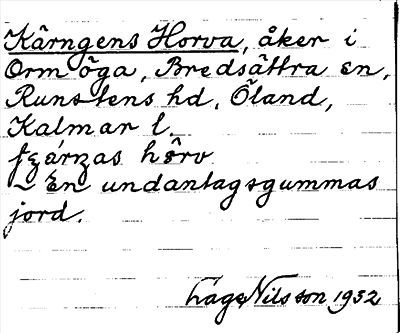 Kärngens Horva, åker i
Ormöga, Bredsättra sn,
Runstens hd, Öland,
Kalmar l.
hôrv
– En undantagsgummas
jord.
Låge Nilsson 1932